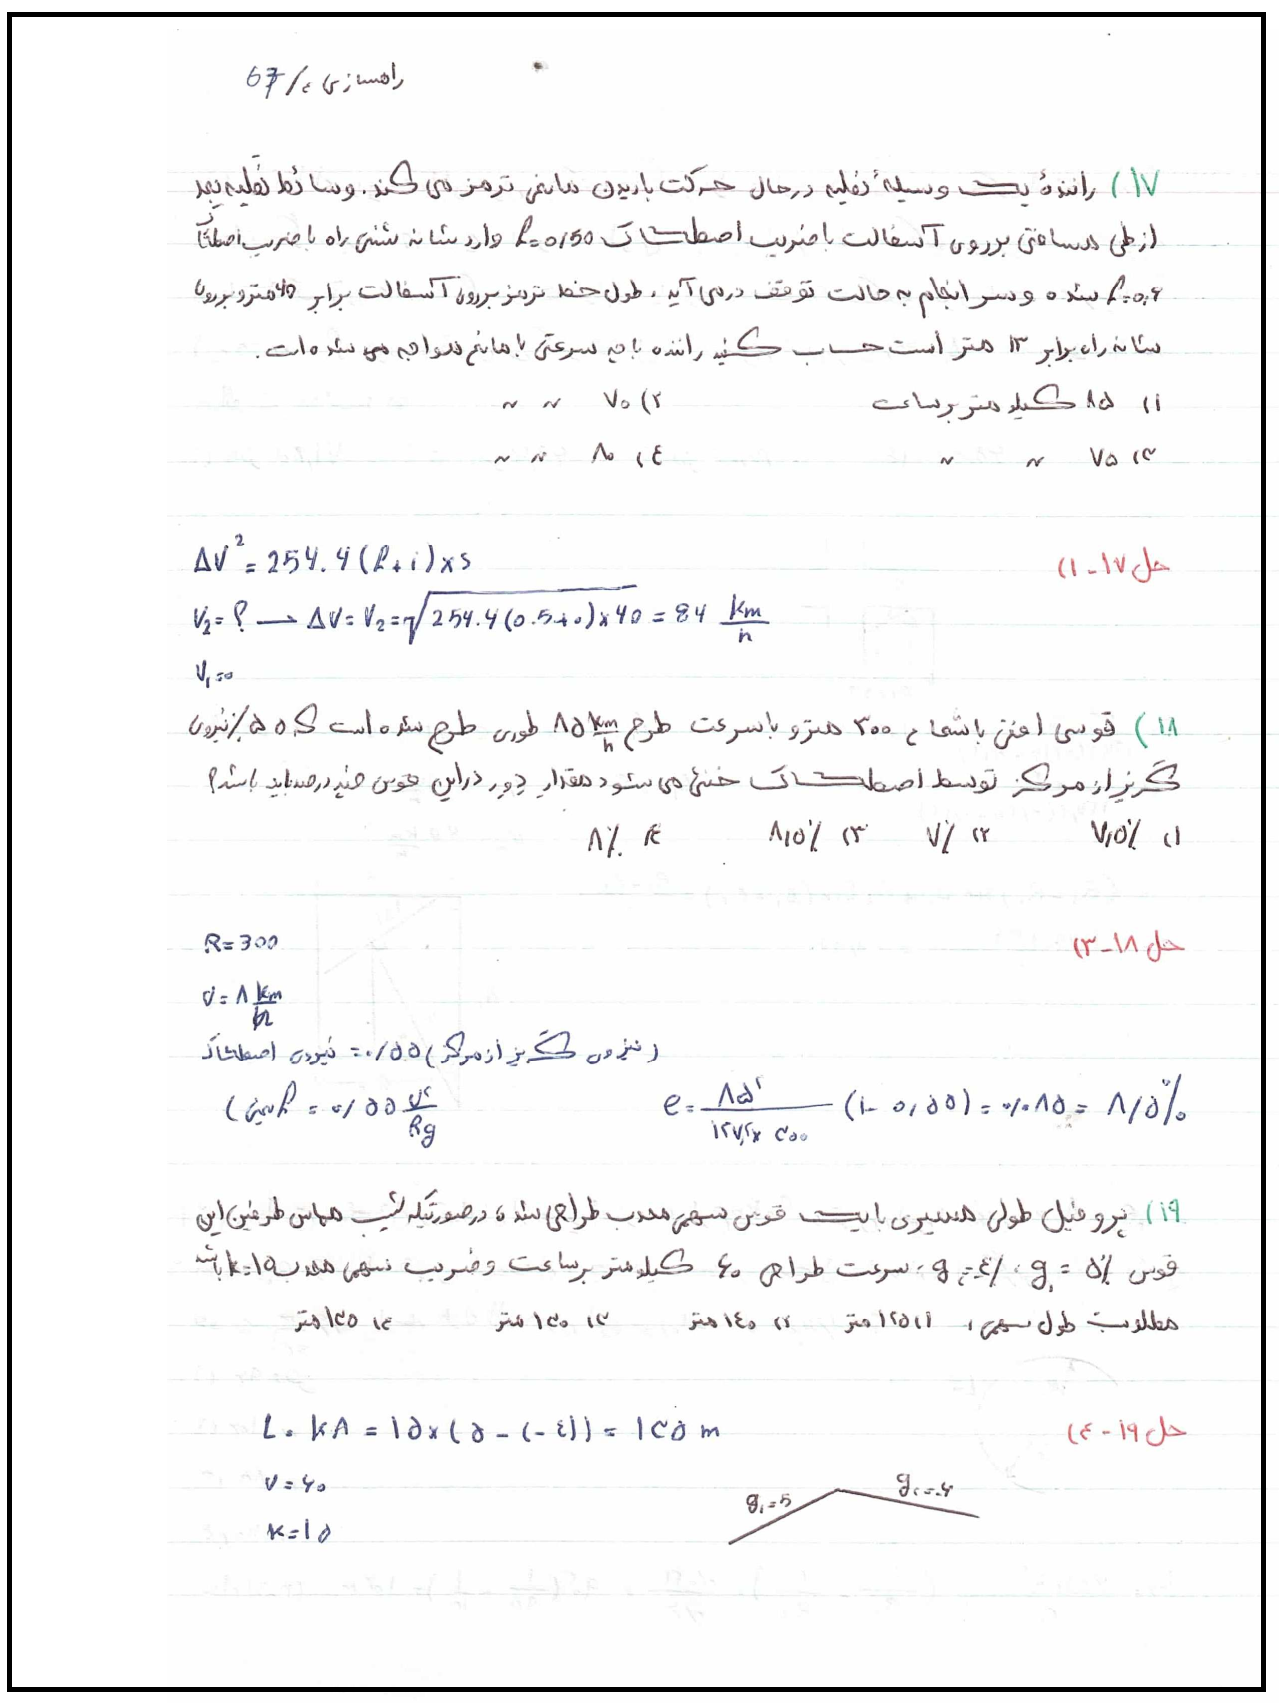 راهسازی 4/ 67
۱۷) رانندهٔ یک وسیلهٔ نقلیه در حال حرکت با دیدن مانعی ترمز می کند. وسائط نقلیه بعد
از طی مسافتی بر روی آسفالت با ضریب اصطکاک f=0/50 وارد شانه شنی راه با ضریب اصطکاک
f=۰٫۶ شده و سرانجام به حالت توقف درمی آید، طول خط ترمز بر روی آسفالت برابر ۴۵ متر و بر روی
شانه راه برابر ۱۳ متر است حساب کنید راننده با چه سرعتی با مانع مواجه می شده است.
۱) ۸۵ کیلومتر بر ساعت ۲) ۷۰ 〃 〃
۳) ۷۵ 〃 〃 ۴) ۸۰ 〃 〃
حل ۱۷-۱)
ΔV² = 254.4 (f+i)×s
V₂=? → ΔV=V₂=√254.4(0.5+0)×40 = 84 km/h
V₁=0
۱۸) قوسی افقی با شعاع ۳۰۰ متر و با سرعت طرح ۸۵ km/h طوری طرح شده است که ۵۵٪ نیروی
گریز از مرکز توسط اصطکاک خنثی می شود مقدار دِوِر در این قوس چند درصد باید باشد؟
۱) ۷٫۵٪ ۲) ۷٪ ۳) ۸٫۵٪ ۴) ۸٪
حل ۱۸-۳)
R=300
v=۸ km/h
(نیروی گریز از مرکز) ۰/۵۵ = نیروی اصطکاک
(یعنی f = ۰/۵۵ v²/Rg e = ۸۵²/۱۲۷٫۲×۳۰۰ (۱-۰٫۵۵) = ۰/۰۸۵ = ۸/۵٪
۱۹) پروفیل طولی مسیری با یک قوس سهمی محدب طراحی شده، در صورتیکه شیب مماس طرفین این
قوس g₁=۵٪، g₂=۴٪، سرعت طراحی ۶۰ کیلومتر بر ساعت و ضریب سهمی محدب k=۱۵ باشد
مطلوبست طول سهمی، ۱) ۱۲۵ متر ۲) ۱۴۰ متر ۳) ۱۳۰ متر ۴) ۱۳۵ متر
حل ۱۹-۴)
L = KA = ۱۵×(۵-(-۴)) = ۱۳۵ m
v=۶۰
k=۱۵
g₁=5 g₂=-4